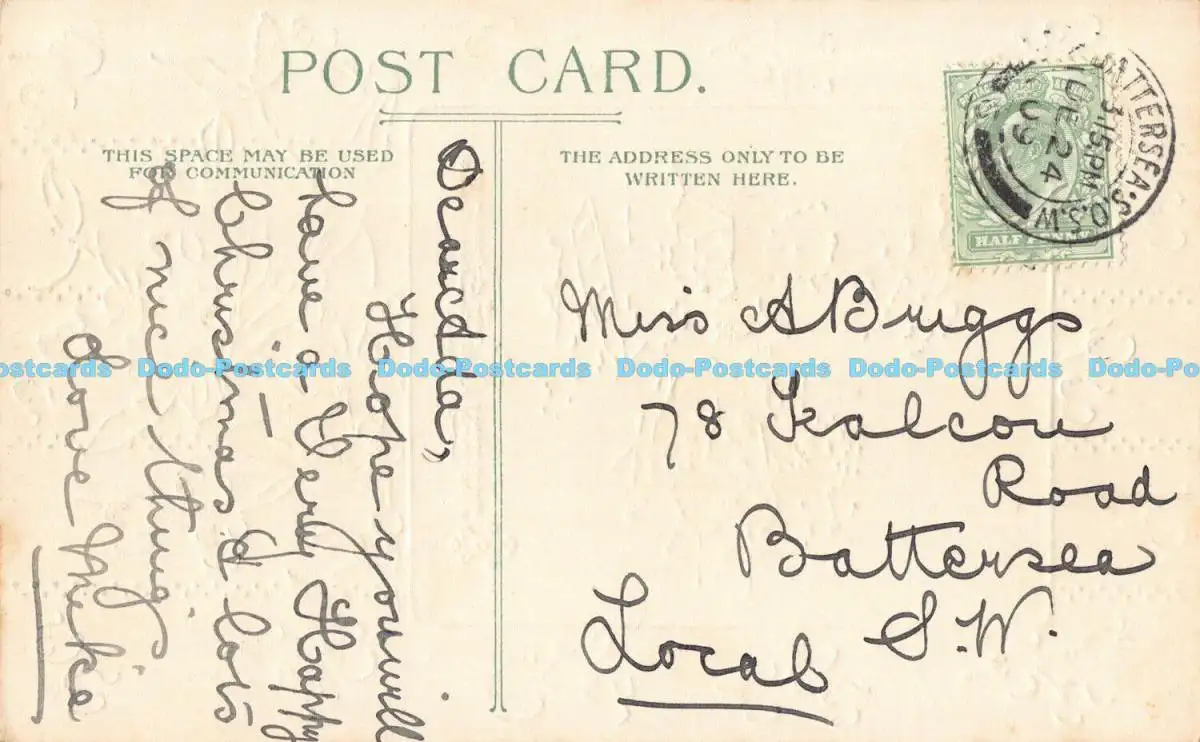 POST CARD.
THIS SPACE MAY BE USED
FOR COMMUNICATION
THE ADDRESS ONLY TO BE
WRITTEN HERE.
BATTERSEA.S.O.S.W
3.15.PM
DE 24
09
HALF PENNY
Dear
Hope you will
have a Very Happy
Christmas & lots
of nice things
Love
Miss A Briggs
78 Falcon
Road
Battersea
S.W.
Local
Dodo-Postcards Dodo-Postcards Dodo-Postcards Dodo-Postcards Dodo-Postcards Dodo-Po